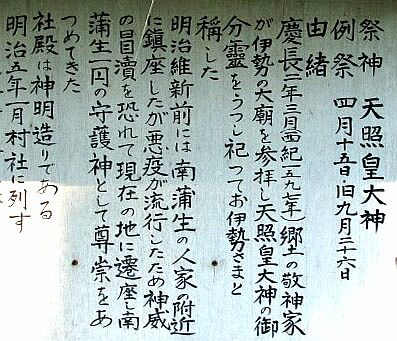 祭神 天照皇大神
例祭 四月十五日旧九月二十六日
由緒
慶長二年三月西紀(一五九七年)郷土の敬神家
が伊勢の大廟を参拝し天照皇大神の御
分霊をうつし祀つてお伊勢さまと
稱した
明治維新前には南蒲生の人家の附近
に鎮座したが悪疫が流行したため神威
の冒瀆を恐れて現在の地に遷座し南
蒲生一円の守護神として尊崇をあ
つめてきた
社殿は神明造りである
明治五年一月村社に列す